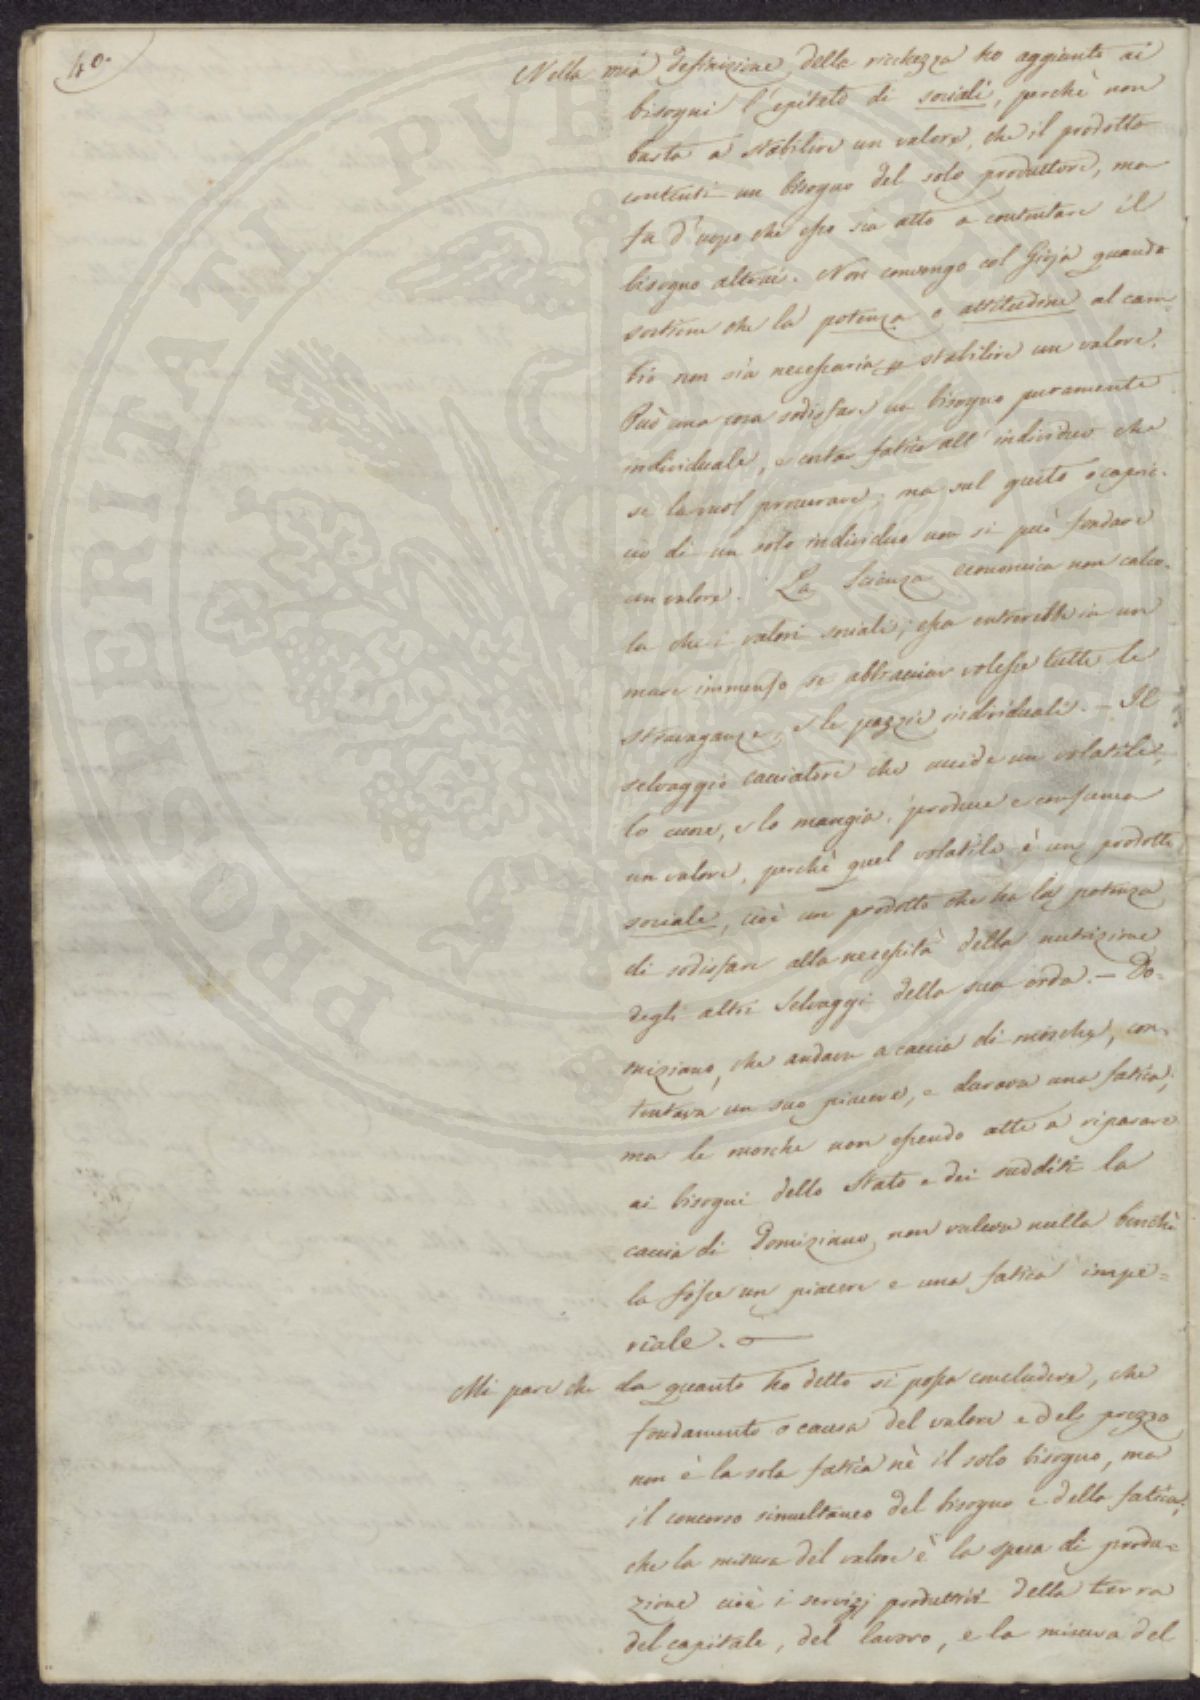 40.
Nella mia definizione della ricchezza ho aggiunto ai
bisogni l'epiteto di sociali, perchè non
basta a stabilire un valore, che il prodotto
contenti un bisogno del solo produttore, ma
fa d'uopo che esso sia atto a contentare il
bisogno altrui. Non convengo col Gioja quando
sostiene che la potenza o attitudine al cam-
bio non sia necessaria a stabilire un valore.
Può una cosa sodisfare un bisogno puramente
individuale, e costar fatica all'individuo che
se la vuol procurare; ma sul gusto o capric-
cio di un solo individuo non si può fondare
un valore. La Scienza economica non calco-
la che i valori sociali; essa entrerebbe in un
mare immenso se abbracciar volesse tutte le
stravaganze, e le pazzie individuali. – Il
selvaggio cacciatore che uccide un volatile,
lo cuoce, e lo mangia, produce e consuma
un valore, perchè quel volatile è un prodotto
sociale, cioè un prodotto che ha la potenza
di sodisfare alla necessità della nutrizione
degli altri Selvaggi della sua orda. – Do-
miziano, che andava a caccia di mosche, con-
tentava un suo piacere, e durava una fatica;
ma le mosche non essendo atte a riparare
ai bisogni dello Stato e dei sudditi la
caccia di Domiziano non valeva nulla benchè
la fosse un piacere e una fatica impe-
riale.
Mi pare che da quanto ho detto si possa concludere, che
fondamento o causa del valore e del prezzo
non è la sola fatica nè il solo bisogno, ma
il concorso simultaneo del bisogno e della fatica;
che la misura del valore è la spesa di produ-
zione cioè i servizj produttivi della terra
del capitale, del lavoro, e la misura del
PROSPERITATI PVB